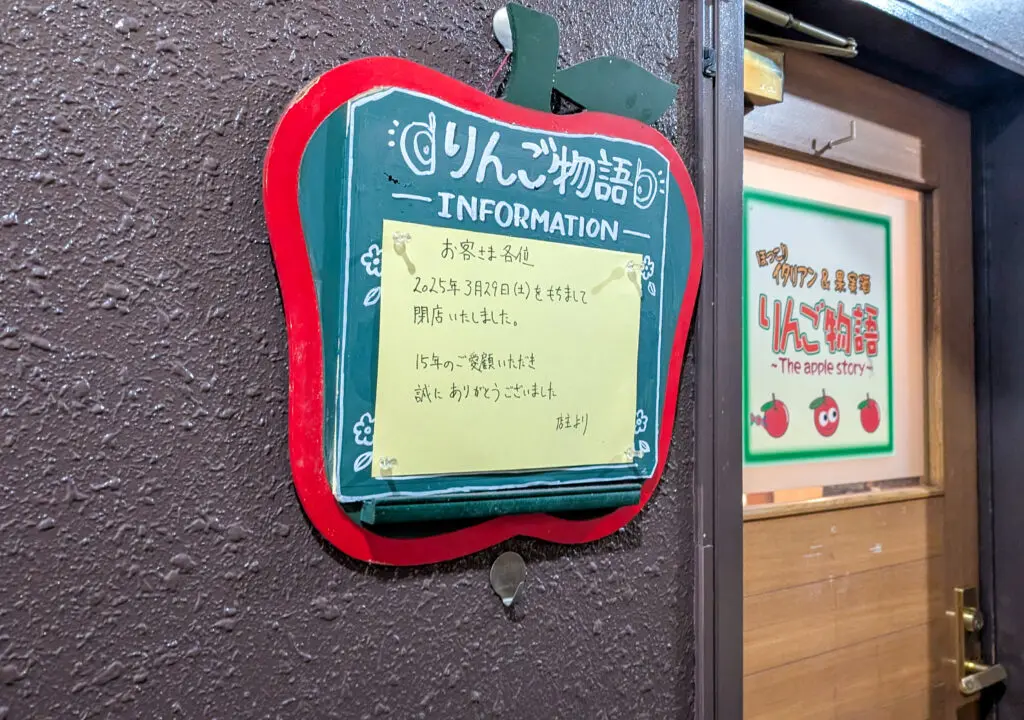 りんご物語
INFORMATION
お客さま各位
2025年3月29日(土)をもちまして
閉店いたしました。
15年のご愛顧いただき
誠にありがとうございました
店主より
ほっこり
イタリアン&果実酒
りんご物語
~The apple story~